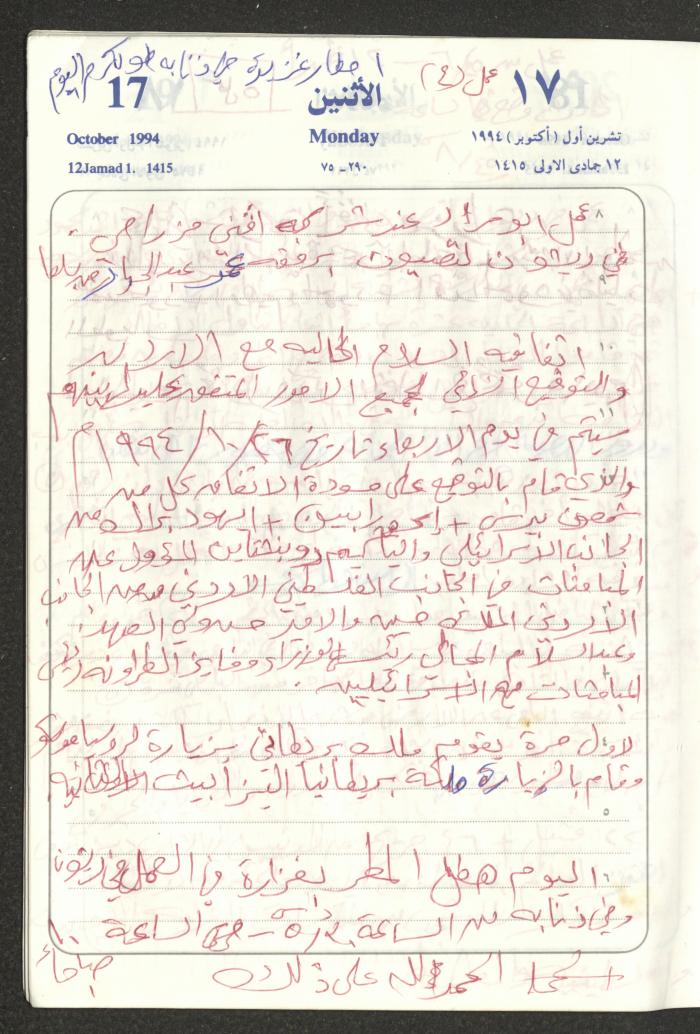 امطار غزيرة في ذنابه طولكرم اليوم
17 الأثنين عمل (٤) ١٧
October 1994 Monday تشرين أول (أكتوبر) ١٩٩٤
12Jamad 1. 1415 ٢٩٠ــ٧٥ ١٢ جمادى الاولى ١٤١٥
٨ عمل اليوم عند شركه افني مزراحي
في ريشون لتصيون برفقه عمر عبد الجواد
٩
١٠ اتفاقيه السلام الحاليه مع الاردن
والتوقيع النهائي لجميع الامور المتفق عليها بينهم
١١ سيتم في يوم الاربعاء تاريخ ٢٦/١٠/١٩٩٤م
والذي قام بالتوقيع على مسودة الاتفاق كل من
شمعون بيرس + إسحق رابين + ايهود براك من
الجانب الاسرائيلي والياكيم روبنشتاين المسؤول عن
المباحثات في الجانب الفلسطيني الاردني ومن الجانب
الاردني الملك حسين والامير حسن ولي العهد
وعبد السلام المجالي رئيس الوزراء وفايز الطراونه رئيس
المباحثات مع الاسرائيليين
لاول مرة يقوم ملك بريطاني بزيارة لروسيا موسكو
وقام بالزيارة ملكة بريطانيا اليزابيث الثانيه
٥
٦ اليوم هطل المطر بغزارة في العمل في ريشون
وفي ذنابه من الساعة حتى الساعة ١٠
صباحاً
الحمد لله على ذلك